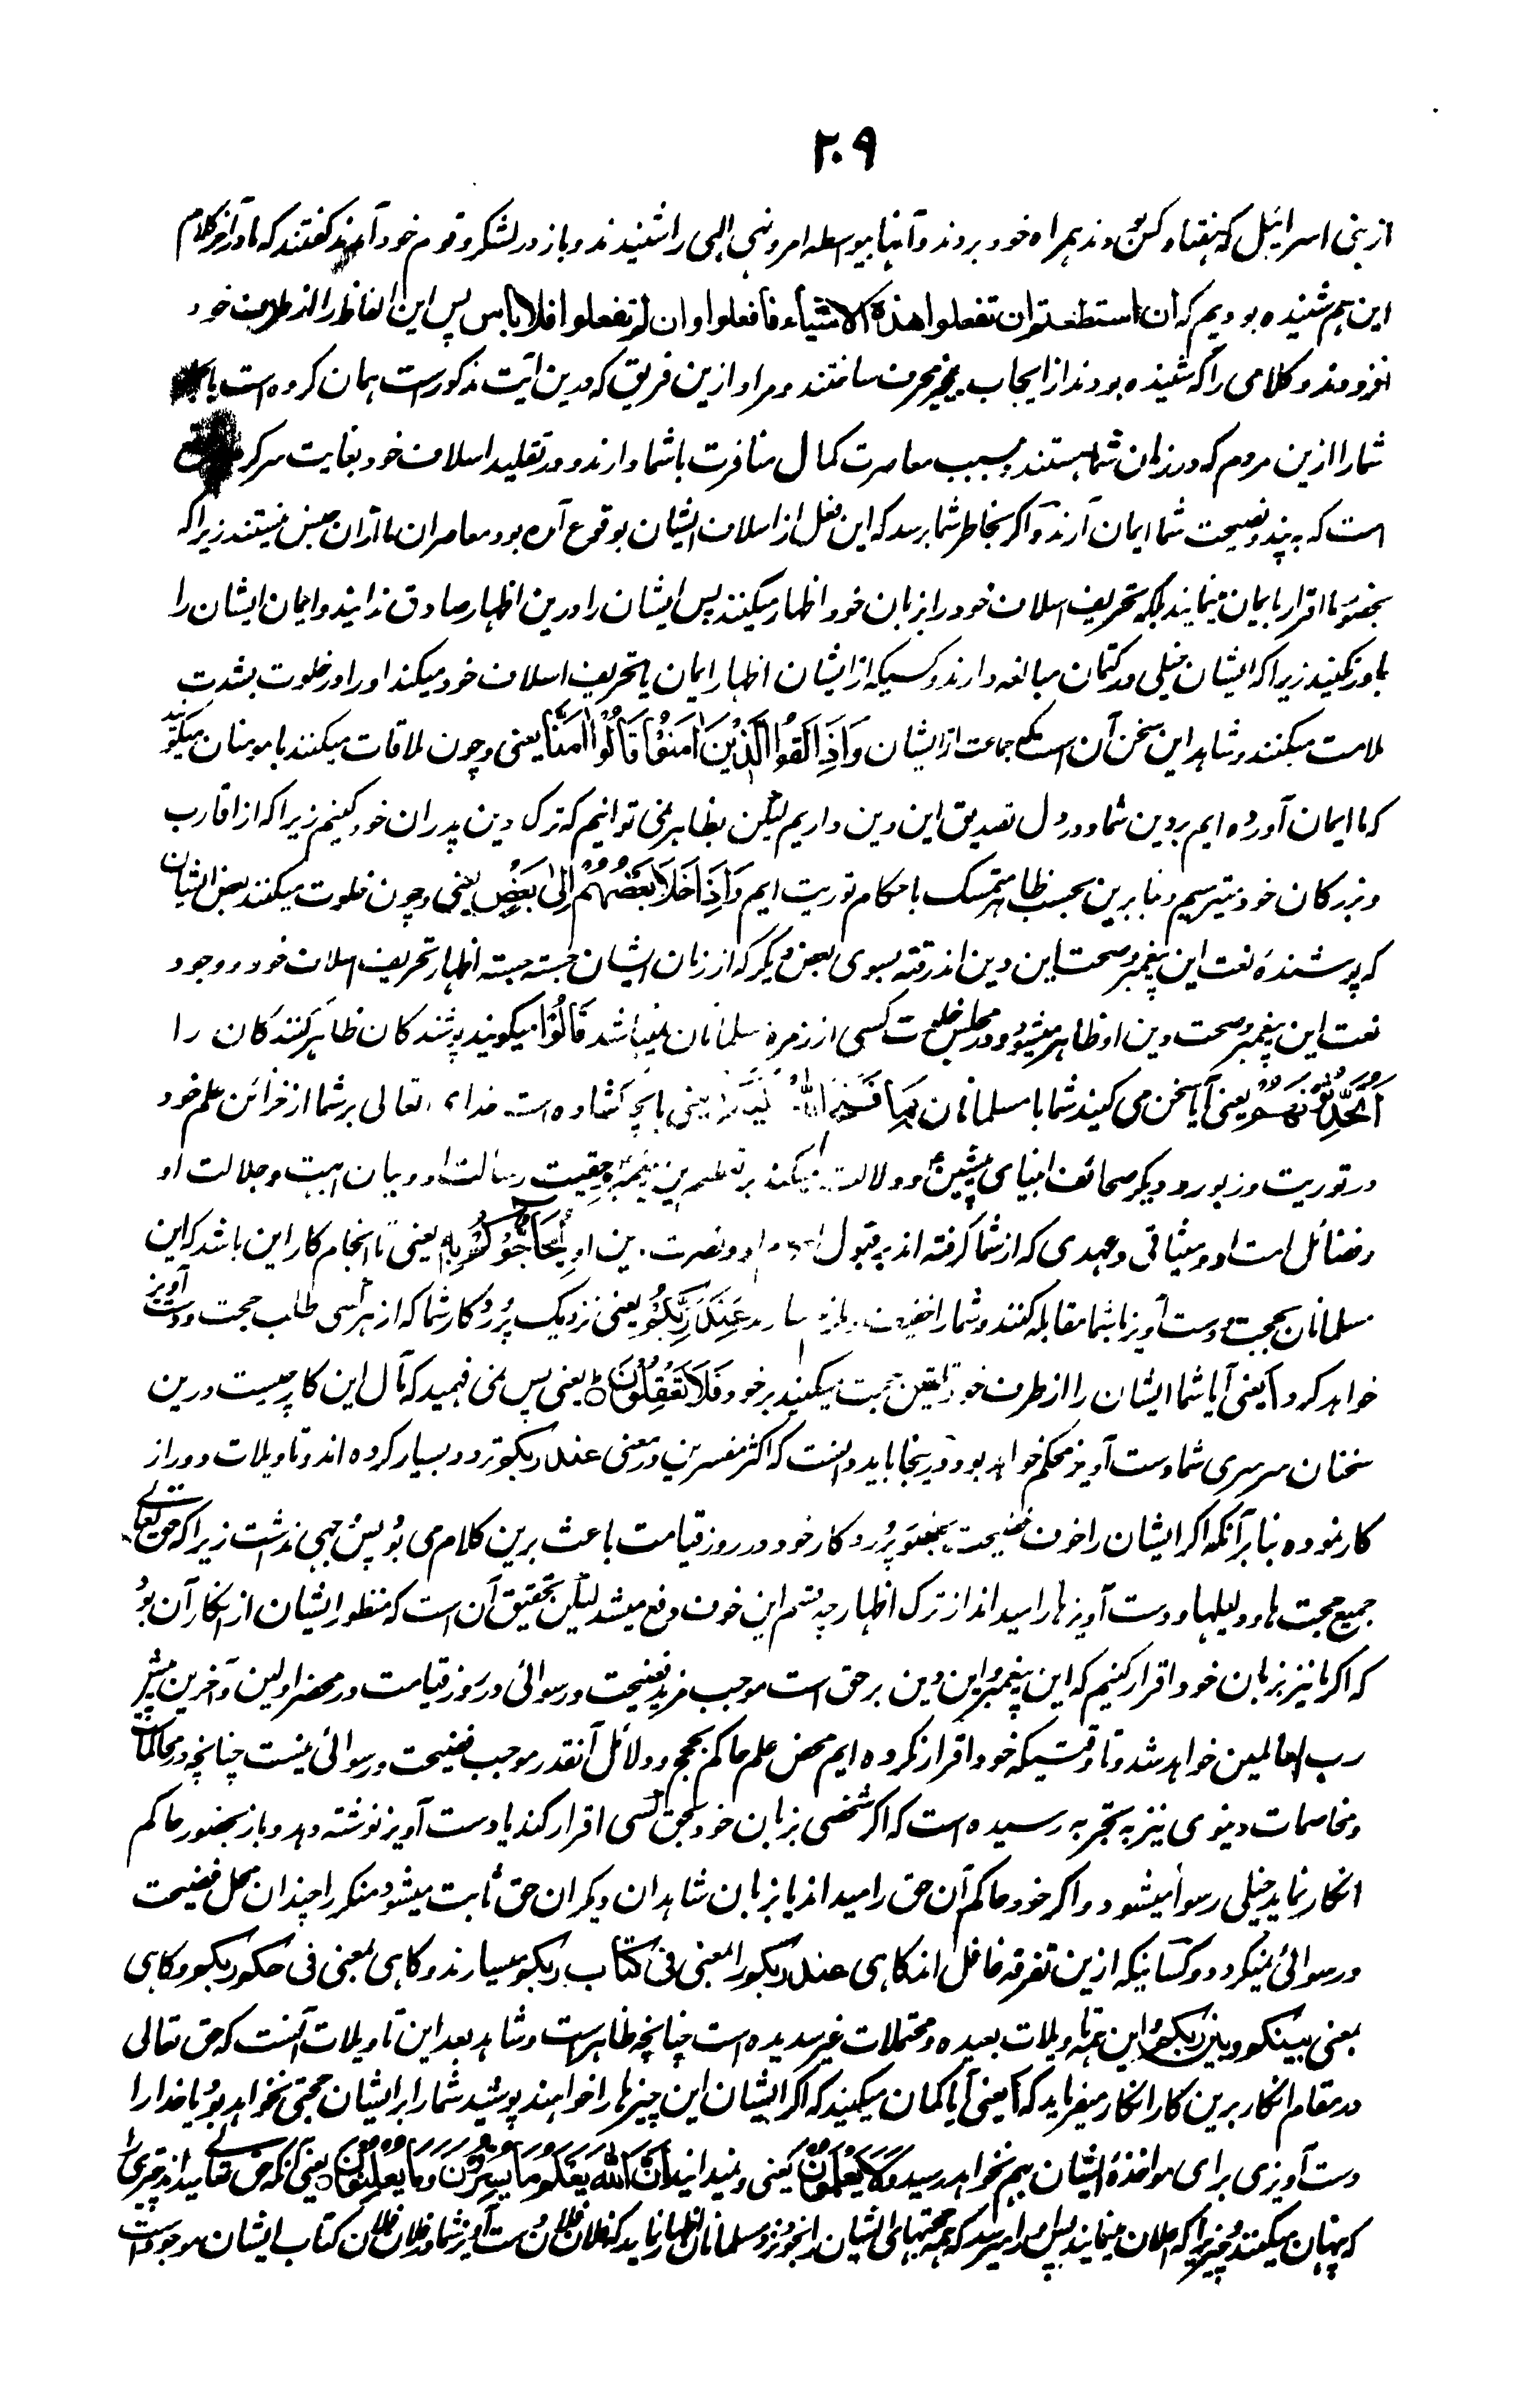 ۲۰۹
از بنی اسرائیل که هفتاد کس بودند همراه خود بردند و آنها بیواسطه امر و نهی الهی را شنیدند و باز در لشکر و قوم خود آمدند گفتند که ما در آخر کلام
این هم شنیده بودیم که ان استطعتم ان تفعلوا هذه الاشیاء فافعلوا وان لم تفعلوا فلا باس پس این الفاظ را از طرف خود
افزودند و کلامی را که شنیده بودند از ایجاب به تخییر محرف ساختند و مراد ازین فریق که درین آیت مذکورست همان گروه است
شما را ازین مردم که در زمان شما هستند بسبب معاصرت کمال منافرت با شما دارند و در تقلید اسلاف خود بغایت سرگرم
است که به پند و نصیحت شما ایمان آرند و اگر بخاطر شما برسد که این فعل از اسلاف ایشان بوقوع آمده بود معاصران ما ازان جنس نیستند زیرا که
بحضور ما اقرار بایمان مینمایند بلکه تحریف اسلاف خود را بزبان خود اظهار میکنند پس ایشان را درین اظهار صادق ندانید و ایمان ایشان را
باور نکنید زیرا که ایشان خیلی در کتمان مبالغه دارند و کسیکه از ایشان اظهار ایمان یا تحریف اسلاف خود میکند او را در خلوت بشدت
ملامت میکنند و شاهد این سخن آن است که جماعت از ایشان وَاِذَا لَقُوا الَّذِیْنَ اٰمَنُوْا قَالُوْٓا اٰمَنَّا یعنی و چون ملاقات میکنند با مومنان میگویند
که ما ایمان آورده ایم بر دین شما و در دل تصدیق این دین داریم لیکن بظاهر نمی توانیم که ترک دین پدران خود کنیم زیرا که از اقارب
و بزرگان خود میترسیم و بنا برین بحسب ظاهر متمسک باحکام توریت ایم وَاِذَا خَلَا بَعْضُهُمْ اِلٰی بَعْضٍ یعنی و چون خلوت میکنند بعض ایشان
که پوشندۀ نعت این پیغمبر و صحت این دین اند رفته بسوی بعض دیگر که از زبان ایشان جسته جسته اظهار تحریف اسلاف خود و وجود
نعت این پیغمبر و صحت دین او ظاهر میشود و در مجلس خلوت کسی از زمرۀ مسلمانان نمیباشد قَالُوْٓا میگویند پوشندگان ظاهر کنندگان را
اَتُحَدِّثُوْنَهُمْ یعنی آیا سخن می کنید شما با مسلمانان بِمَا فَتَحَ اللّٰهُ عَلَیْكُمْ یعنی بانچه کشاده است خدای تعالی بر شما از خزائن علم خود
در توریت و زبور و دیگر صحائف انبیای پیشین و دلالت میکند بر تعظیم این پیغمبر و حقیت رسالت او و بیان هیبت و جلالت او
و فضائل امت او و میثاقی و عهدی که از شما گرفته اند بر قبول او و نصرت دین او لِیُحَآجُّوْكُمْ بِهٖ یعنی تا انجام کار این باشد که این
مسلمانان بحجت و دست آویز با شما مقابله کنند و شما را عِنْدَ رَبِّكُمْ یعنی نزدیک پروردگار شما که از هر کسی طلب حجت و دست آویز
خواهد کرد اَ یعنی آیا شما ایشان را از طرف خود تلقین حجت میکنید بر خود فَلَا تَعْقِلُوْنَ یعنی پس نمی فهمید که مآل این کار چیست درین
سخنان سرسری شما دست آویز محکم خواهد بود و درینجا باید دانست که اکثر مفسرین در معنی عند ربکم تردد بسیار کرده اند و تاویلات دور از
کار نموده بنا بر آنکه اگر ایشان را خوف فضیحت بحضور پروردگار خود در روز قیامت باعث برین کلام می بود پس وجهی نداشت زیرا که حق تعالی
جمیع حجت ها و دلیلها و دست آویزها را میداند از ترک اظهار چه قسم این خوف دفع میشد لیکن تحقیق آن است که منظور ایشان از انکار آن بود
که اگر ما نیز بزبان خود اقرار کنیم که این پیغمبر و این دین برحق است موجب مزید فضیحت و رسوائی در روز قیامت در محضر اولین و آخرین پیش
رب العالمین خواهد شد و تا وقتیکه خود اقرار نکرده ایم محض علم حاکم بحجج و دلائل آنقدر موجب فضیحت و رسوائی نیست چنانچه در محاکمات
و مخاصمات دنیوی نیز به تجربه رسیده است که اگر شخصی بزبان خود بحق کسی اقرار کند یا دست آویز نوشته دهد و باز بحضور حاکم
انکار نماید خیلی رسوا میشود و اگر خود حاکم آن حق را میداند یا بزبان شاهدان دیگر آن حق ثابت میشود منکر را چندان محل فضیحت
و رسوائی نمیگردد و کسانیکه ازین تفرقه غافل اند گاهی عند ربکم را بمعنی فی کتاب ربکم میسازند و گاهی بمعنی فی حکم ربکم و گاهی
بمعنی بینکم و بین ربکم و این همه تاویلات بعیده و محتملات غیر سدیده است چنانچه ظاهرست و شاهد بعد این تاویلات آنست که حق تعالی
در مقام انکار برین کار انکار میفرماید که اَ یعنی آیا گمان میکنید که اگر ایشان این چیزها را خواهند پوشید شما را بر ایشان حجتی نخواهد بود یا خدا را
دست آویزی برای مواخذۀ ایشان بهم نخواهد رسید وَلَا یَعْلَمُوْنَ یعنی و نمیدانند اَنَّ اللّٰهَ یَعْلَمُ مَا یُسِرُّوْنَ وَمَا یُعْلِنُوْنَ یعنی آنکه حق تعالی میداند چیزی را
که پنهان میکنند و چیزیرا که اعلان مینمایند پس او را میرسد که همه حجتهای ایشان را نزد مسلمانان اظهار نماید که فلان فلان دست آویز شما در فلان فلان کتاب ایشان موجود است